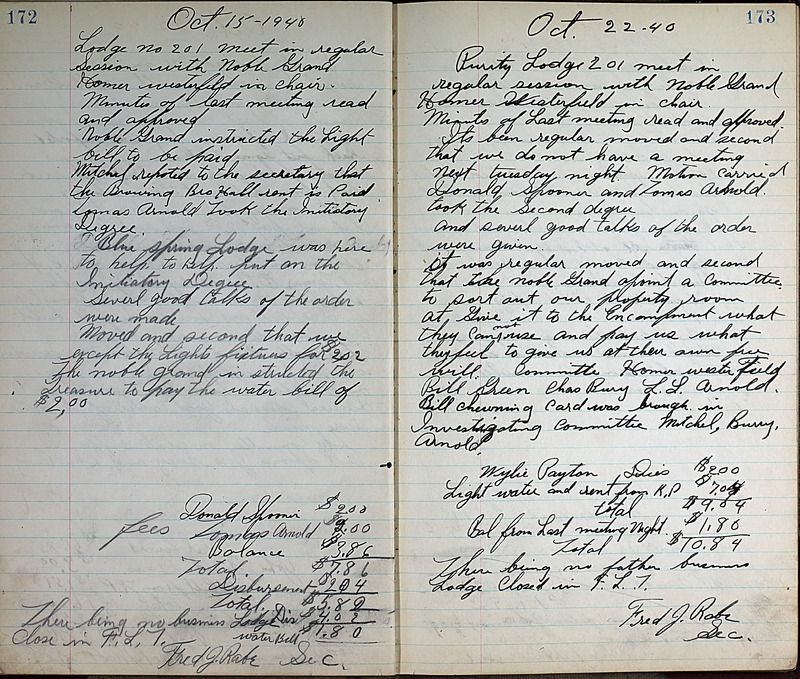 172
Oct. 15-1940
Lodge no 201 meet in regular
session with Noble Grand
Homer westerfeld in chair.
Minutes of last meeting read
and approved
Noble Grand instructed the Light
bill to be paid.
Mitchel repoted to the secretary that
the Browing Bro Hall rent is Paid.
Lomas Arnold took the Initiatory
Degree.
Blue spring Lodge was here
to help to help put on the
Initiatory Degree
Severl good talks of the order
were made
Moved and second that we
except the Lights fixtures for $2.02
The noble grand in structed the
treasure to pay the water bill of
$2,00
Donald Spooner $2.00
fees Lomas Arnold 2.00
Balance $3.86
Total $7.86
Disbursement
Total
There being no business Lodge Dis
Close in F. L. T. water Bill 1.80
Fred J. Rabe Sec.
173
Oct. 22-40
Purity Lodge 201 meet in
regular session with Noble Grand
Homer Westerfield in chair.
Minuts of Last meeting read and approved.
Its been regular moved and second
that we do not have a meeting
Next tuesday night Motion Carried
Donald Spooner and Lomas Arnold.
took the second degree
and severl good talks of the order
were given.
it was regular moved and second
that the noble Grand apoint a Committee
to sort out our property room
at, Give it to the Encampment what
they can not use and pay us what
they feel to give us at their own free
will. Committe Homer westerfield
Bill Green Chas Bury L.L. Arnold.
Bill chewning Card was brough in
Investigating Committee Mitchel, Burry,
Arnold
Wylie Payton Dues $2.00
Light water and rent from K.P $7.04
total $9.04
Bal from Last meeting Night. $1.80
Total $10.84
There being no father business
Lodge Closed in F. L. T.
Fred J. Rabe
Sec.